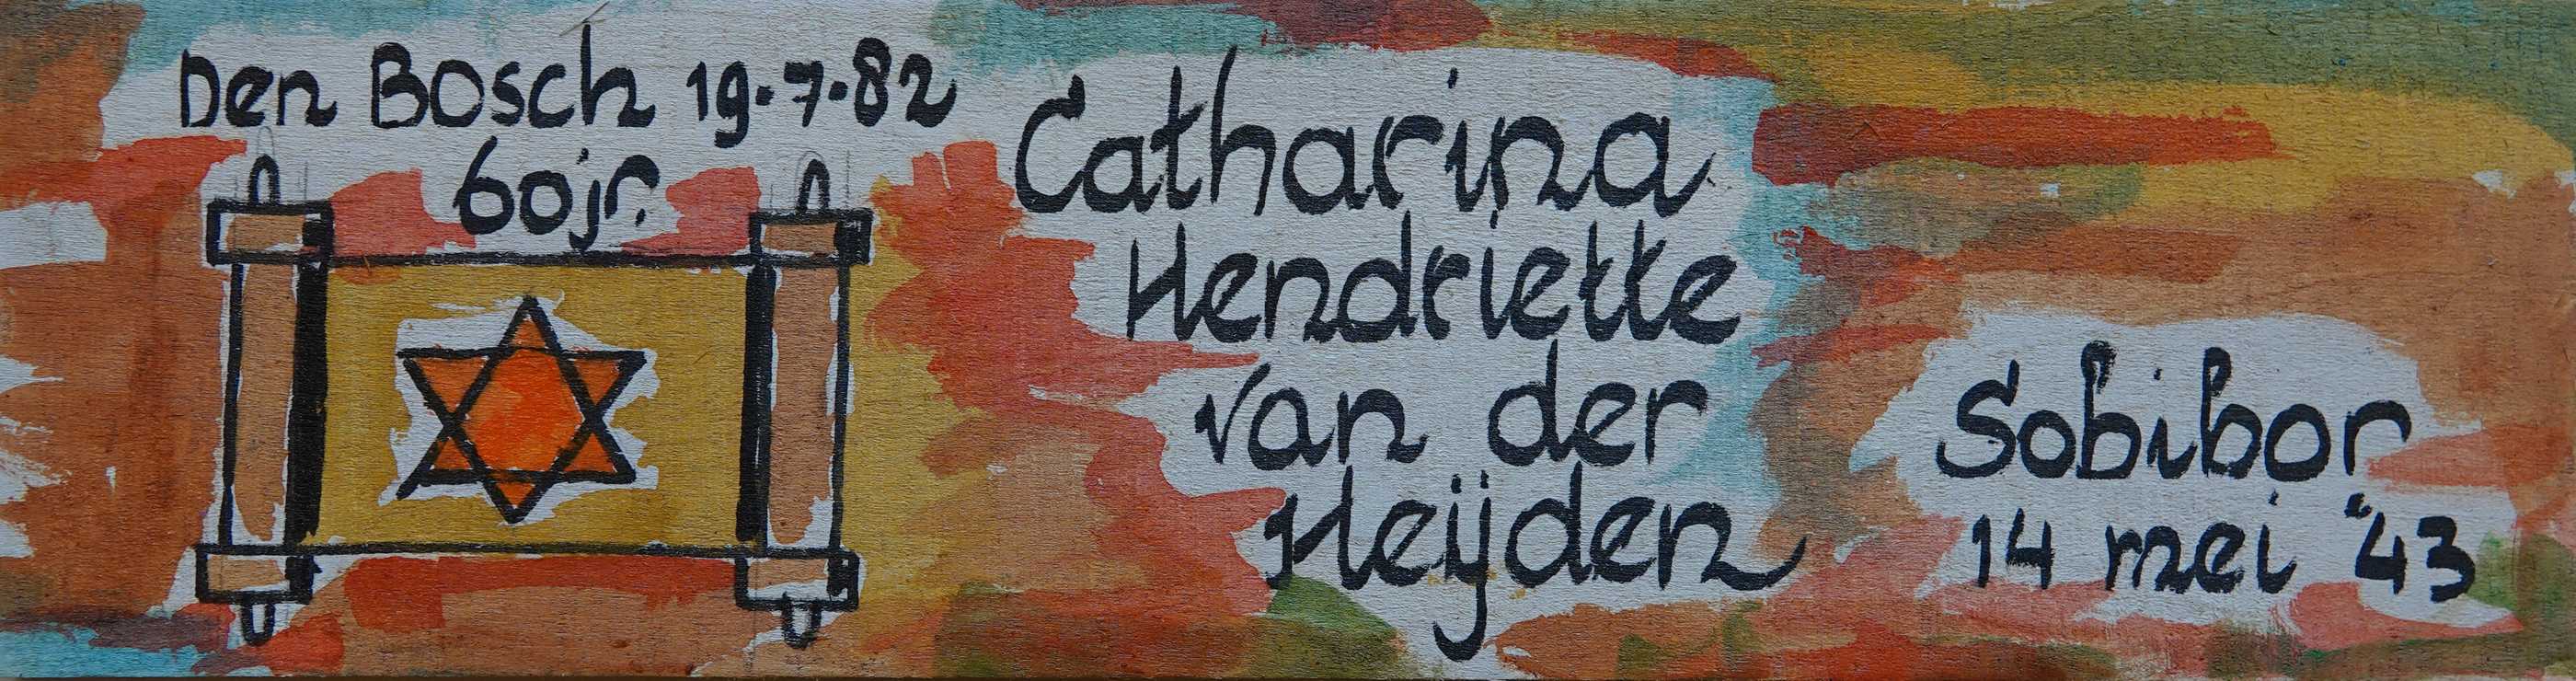 Den Bosch 19.7.82
60jr.
Catharina
Henriette
van der
Heijden
Sobibor
14 mei "43